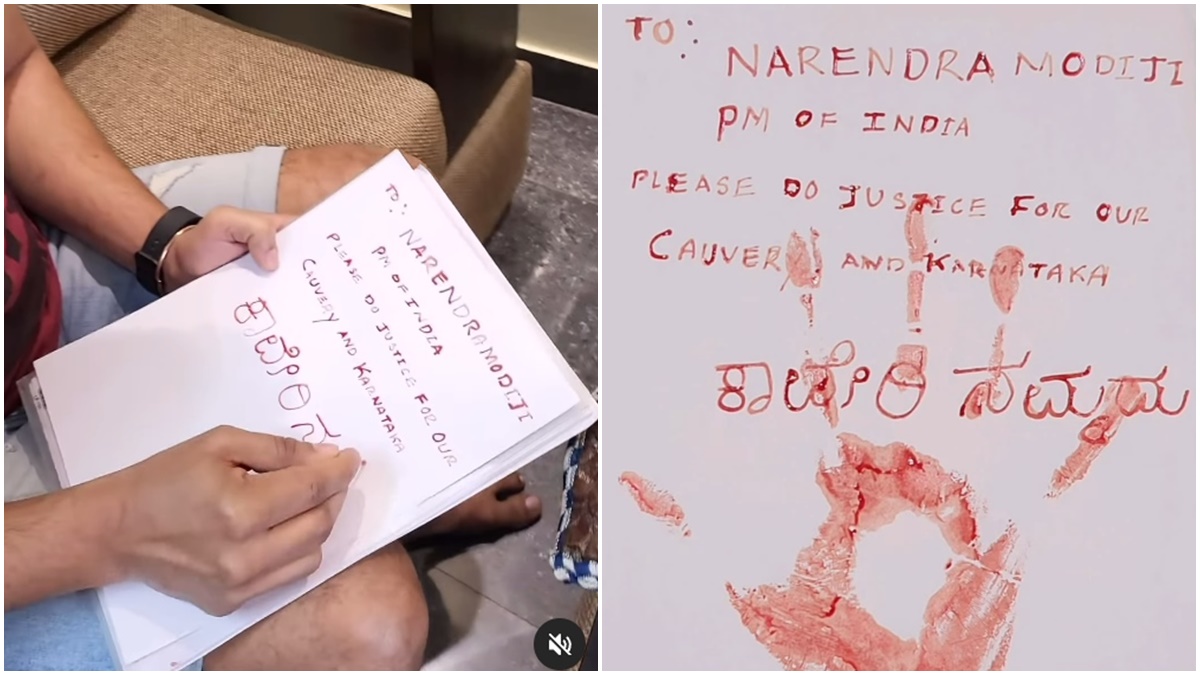 TO:
NARENDRA MODIJI
PM OF INDIA
PLEASE DO JUSTICE FOR OUR
CAUVERY AND KARNATAKA
ಕಾವೇರಿ ನ
TO:
NARENDRA MODIJI
PM OF INDIA
PLEASE DO JUSTICE FOR OUR
CAUVERY AND KARNATAKA
ಕಾವೇರಿ ನಮ್ಮದು